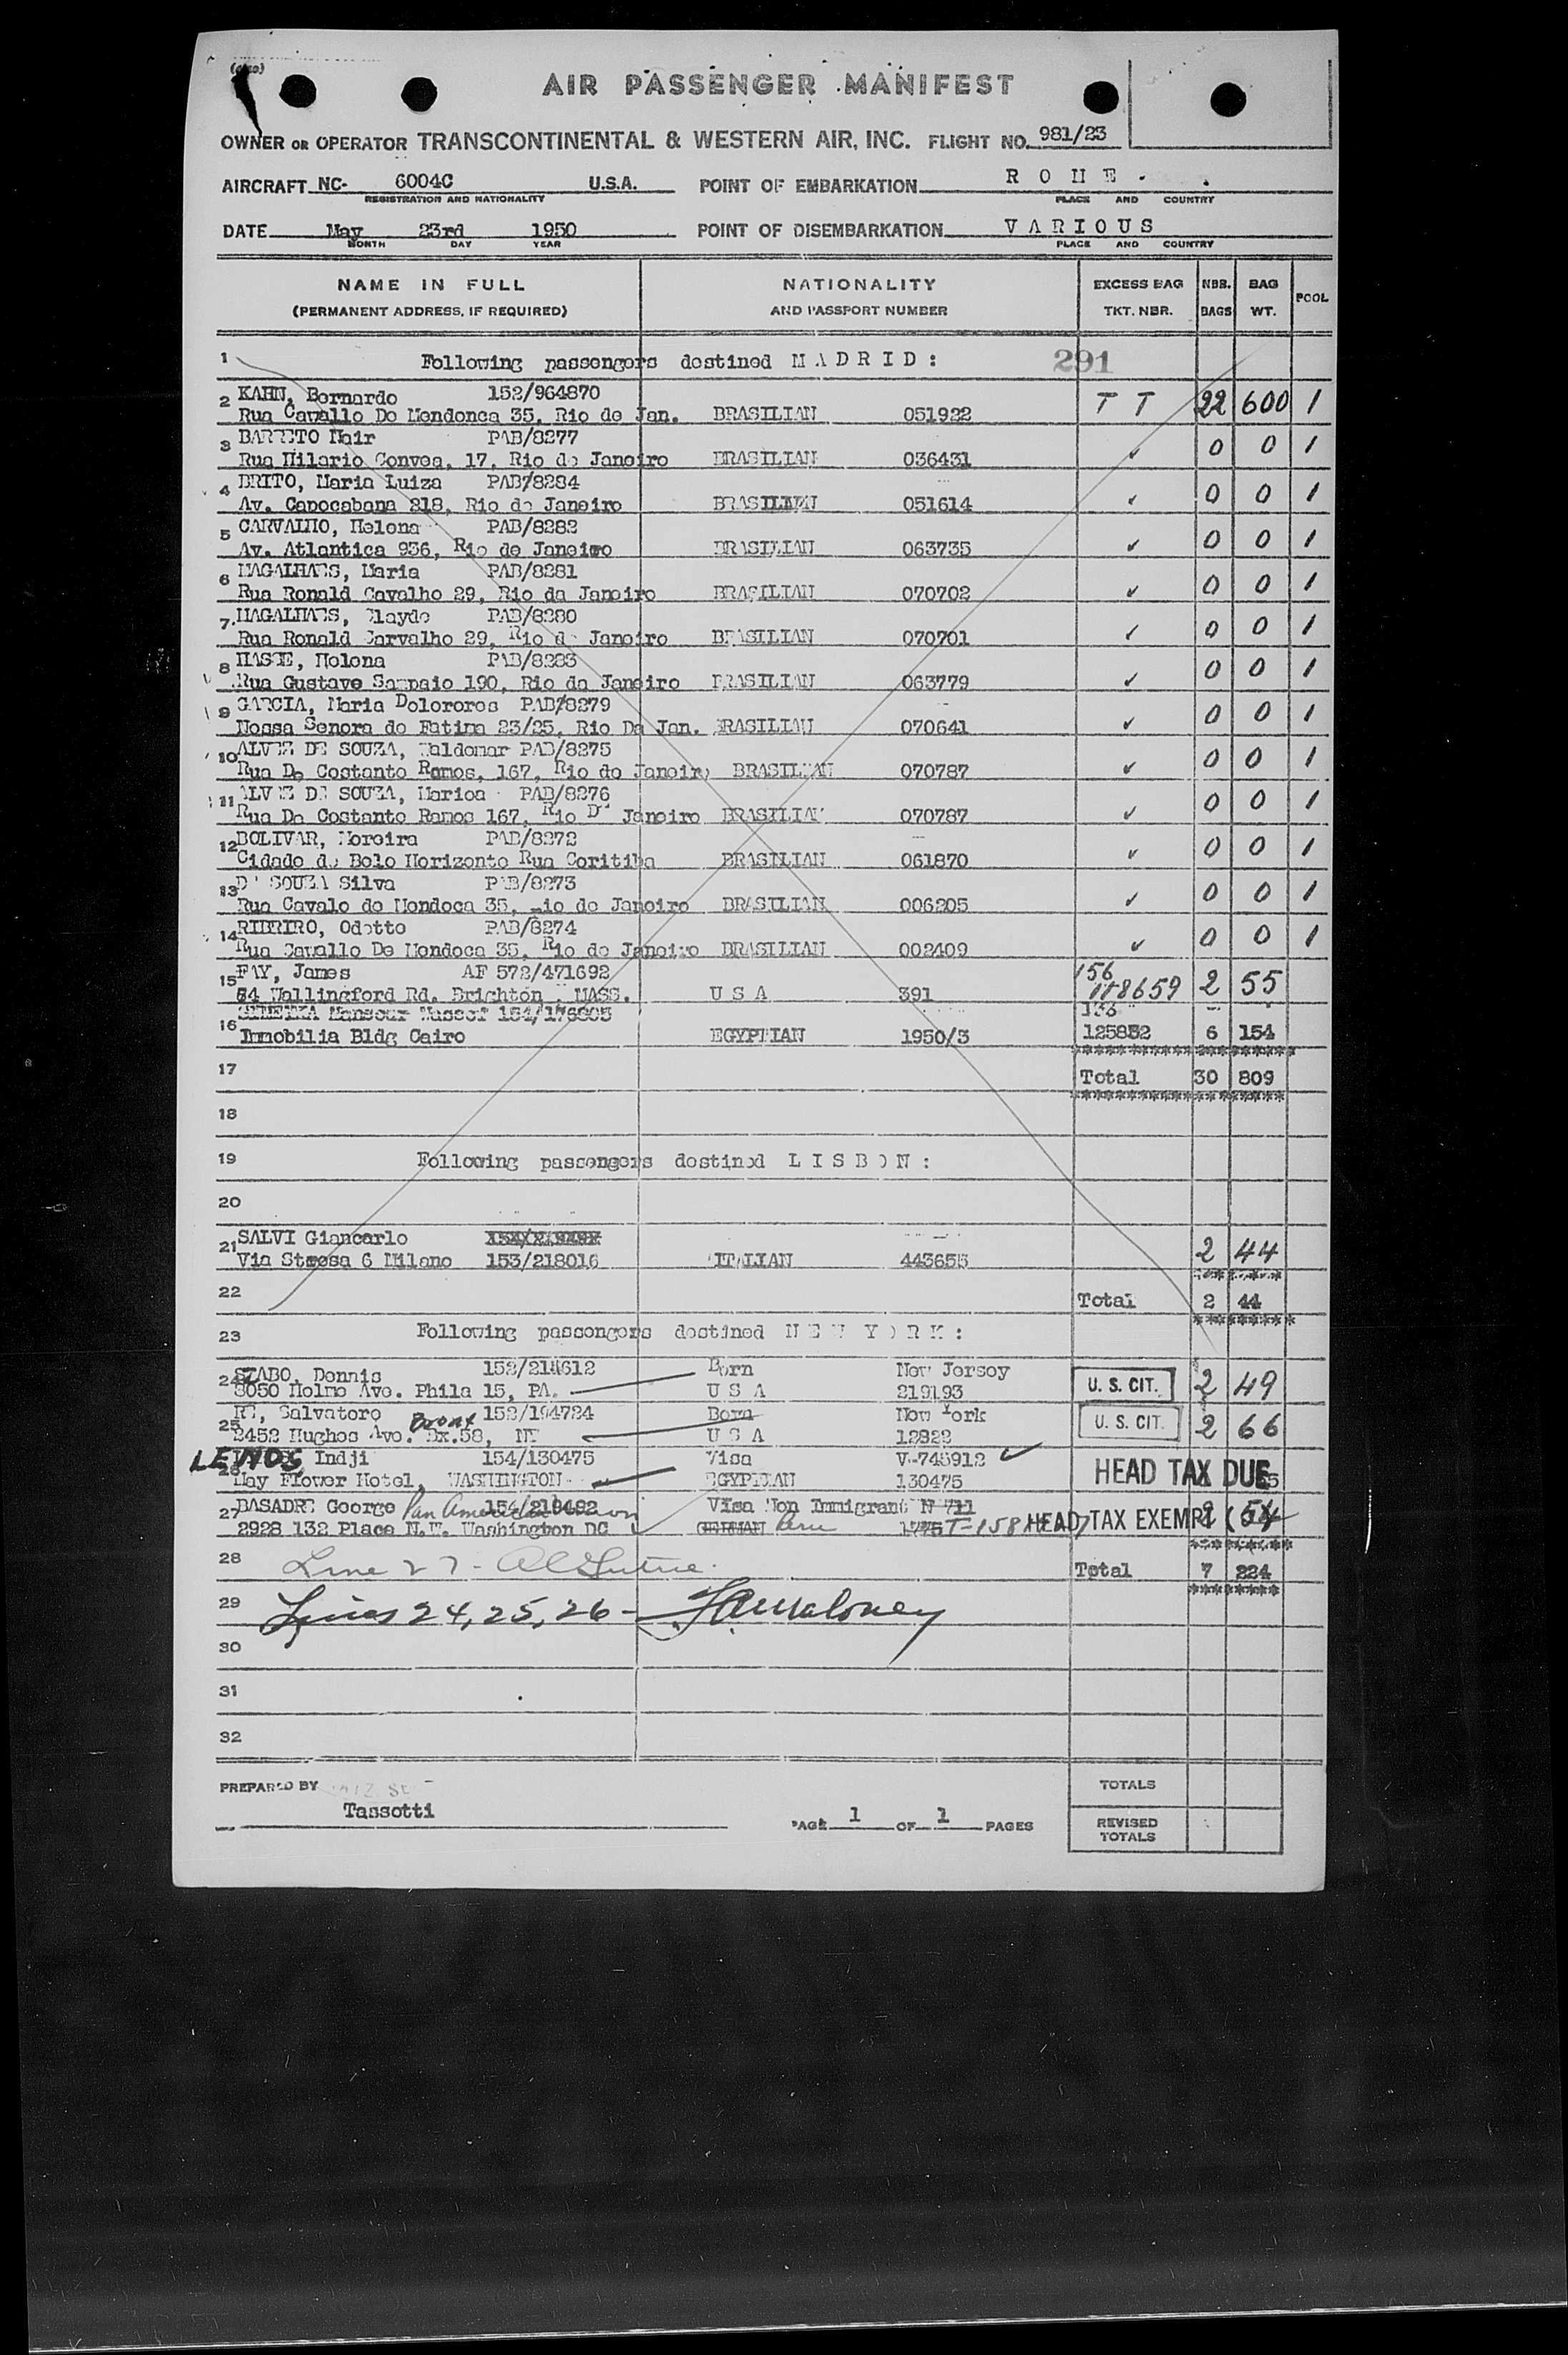 AIR PASSENGER MANIFEST
OWNER OR OPERATOR TRANSCONTINENTAL & WESTERN AIR, INC. FLIGHT NO. 981/23
AIRCRAFT NC- 6004C U.S.A. POINT OF EMBARKATION R O M E .
REGISTRATION AND NATIONALITY PLACE AND COUNTRY
DATE May 23rd 1950 POINT OF DISEMBARKATION V A R I O U S
MONTH DAY YEAR PLACE AND COUNTRY
NAME IN FULL NATIONALITY EXCESS BAG NBR. BAG POOL
(PERMANENT ADDRESS, IF REQUIRED) AND PASSPORT NUMBER TKT. NBR. BAGS WT.
1 Following passengers destined M A D R I D : 291
2 KAHN, Bernardo 152/964870 T T 22 600 1
Rua Cavallo De Mendonca 35, Rio de Jan. BRASILIAN 051922
3 BARRETO Nair PAB/8277 0 0 1
Rua Hilario Convea, 17, Rio de Janeiro BRASILIAN 036431 ✓
4 BRITO, Maria Luiza PAB/8284 0 0 1
Av. Capocabana 218, Rio de Janeiro BRASILIAN 051614 ✓
5 CARVALHO, Helena PAB/8282 0 0 1
Av. Atlantica 936, Rio de Janeiro BRASILIAN 063735 ✓
6 MAGALHAES, Maria PAB/8281 0 0 1
Rua Ronald Cavalho 29, Rio da Janeiro BRASILIAN 070702 ✓
7. MAGALHAES, Clayde PAB/8280 0 0 1
Rua Ronald Carvalho 29, Rio de Janeiro BRASILIAN 070701 ✓
8 Helena PAB/8283 0 0 1
Rua Gustavo Sampaio 190, Rio da Janeiro BRASILIAN 063779 ✓
9 GARCIA, Maria Dolororos PAB/8279 0 0 1
Nossa Senora de Fatima 23/25, Rio De Jan. BRASILIAN 070641 ✓
10 ALVEZ DE SOUZA, Waldomar PAB/8275 0 0 1
Rua De Costante Ramos, 167, Rio de Janeiro BRASILIAN 070787 ✓
11 ALVEZ DE SOUZA, Marica PAB/8276 0 0 1
Rua De Costante Ramos 167, Rio De Janeiro BRASILIAN 070787 ✓
12 BOLIVAR, Moreira PAB/8272 0 0 1
Cidade de Belo Horizonte Rua Coritiba BRASILIAN 061870 ✓
13 D' SOUZA Silva PAB/8273 0 0 1
Rua Cavalo de Mendoca 35, Rio de Janeiro BRASILIAN 006205 ✓
14 RIBRIRO, Odette PAB/8274 0 0 1
Rua Cavallo De Mendoca 35, Rio de Janeiro BRASILIAN 002409 ✓
15 FAY, James AF 572/471692 156 118659 2 55
54 Wallingford Rd. Brighton, MASS. U S A 391
16 Mansour Wassef
Immobilia Bldg Cairo EGYPTIAN 1950/3 125852 6 154
17 Total 30 809
18
19 Following passengers destined L I S B O N :
20
21 SALVI Giancarlo
Via Stresa 6 Milano 153/218016 ITALIAN 443655 2 44
22 Total 2 44
23 Following passengers destined N E W Y O R K :
24 SZABO, Dennis 152/214612 Born New Jersey U. S. CIT. 2 49
3050 Holme Ave. Phila 15, PA. U S A 219193
25 RE, Salvatore 152/194724 Born New York U. S. CIT. 2 66
2452 Hughes Ave. Bronx Bx.58, NY U S A 12822
26 Indji 154/130475 Visa V-745912 ✓ HEAD TAX DUE
May Flower Hotel, WASHINGTON EGYPTIAN 130475
27 BASADRE George Pan American Union 154/210482 Visa Non Immigrant N 711 HEAD TAX EXEMPT
2928 132 Place N.W. Washington DC GERMAN Peru
28 Line 27 - Total 7 224
29 Lines 24, 25, 26 - Maloney
30
31
32
PREPARED BY
Tassotti
PAGE 1 OF 1 PAGES
TOTALS
REVISED TOTALS